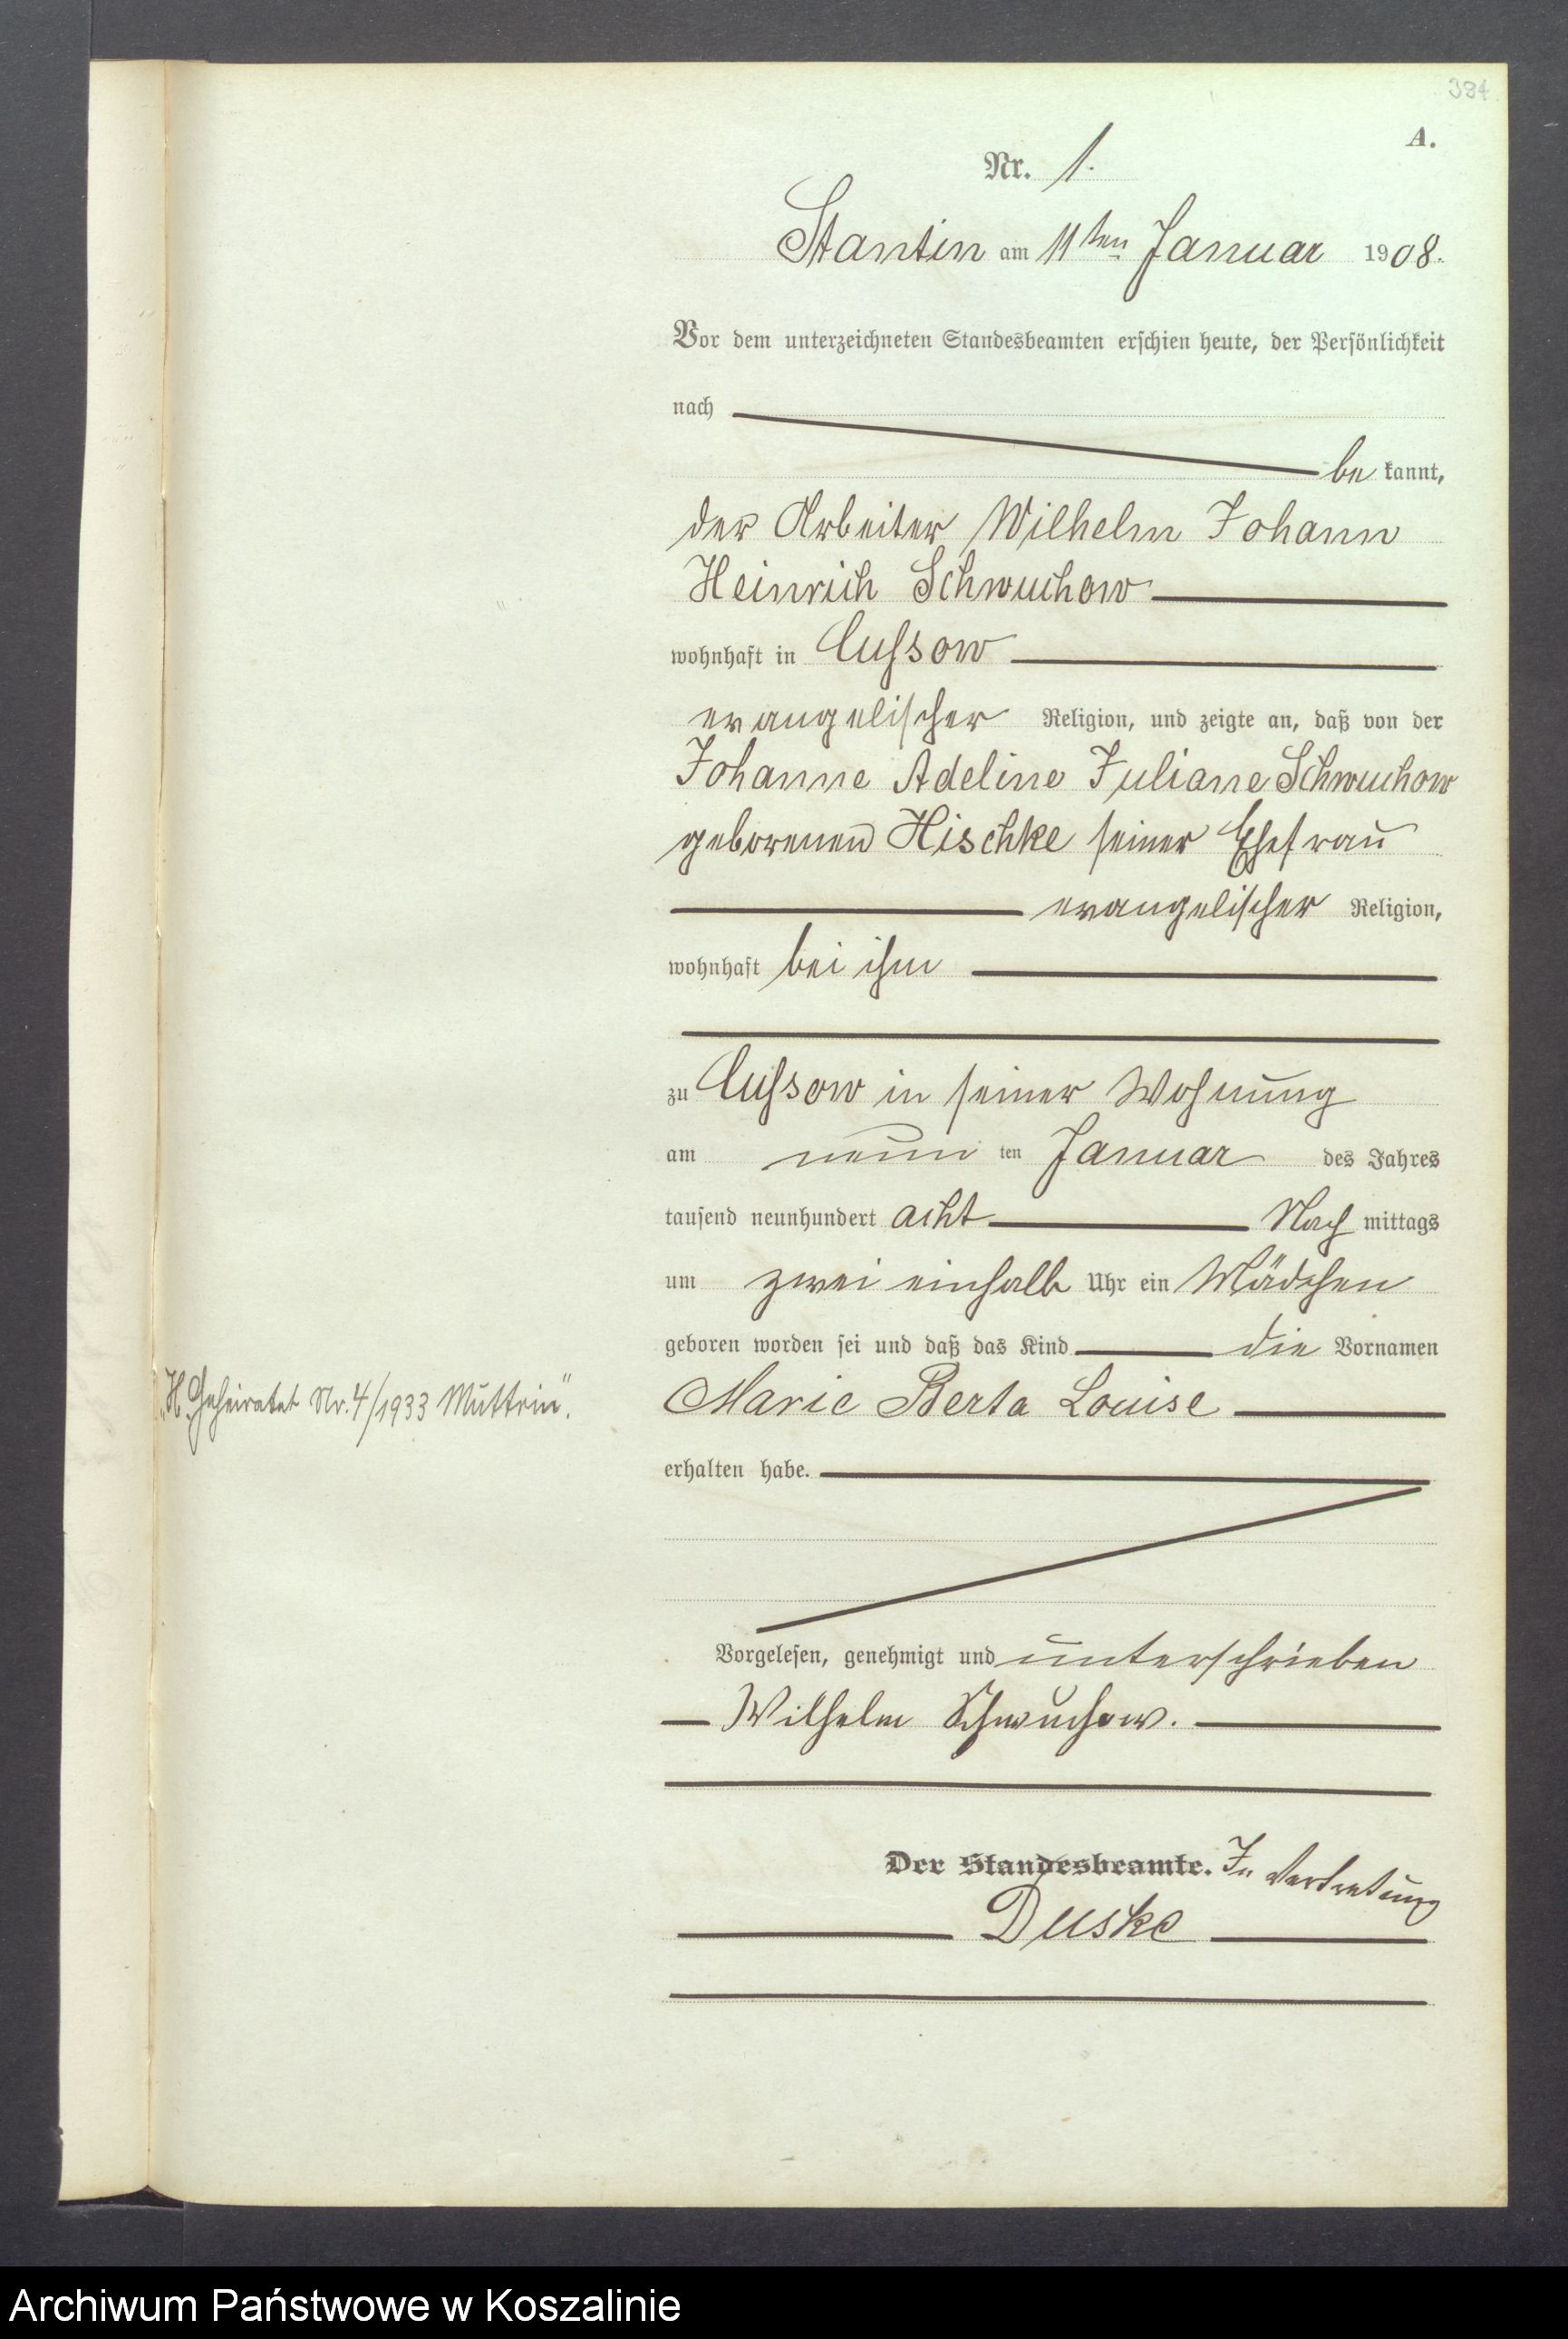 384
A.
Nr. 1.
Stantin am 11ten Januar 1908.
Vor dem unterzeichneten Standesbeamten erschien heute, der Persönlichkeit
nach
be kannt,
der Arbeiter Wilhelm Johann
Heinrich Schwuchow
wohnhaft in Cussow
evangelischer Religion, und zeigte an, daß von der
Johanne Adeline Juliane Schwuchow
geborenen Hischke seiner Ehefrau
evangelischer Religion,
wohnhaft bei ihm
zu Cussow in seiner Wohnung
am neun ten Januar des Jahres
tausend neunhundert acht Nach mittags
um zwei einhalb Uhr ein Mädchen
geboren worden sei und daß das Kind die Vornamen
„H. Geheiratet Nr. 4/1933 Muttrin".
Marie Berta Louise
erhalten habe.
Vorgelesen, genehmigt und unterschrieben
Wilhelm Schwuchow.
Der Standesbeamte. In Vertretung
Duske
Archiwum Państwowe w Koszalinie